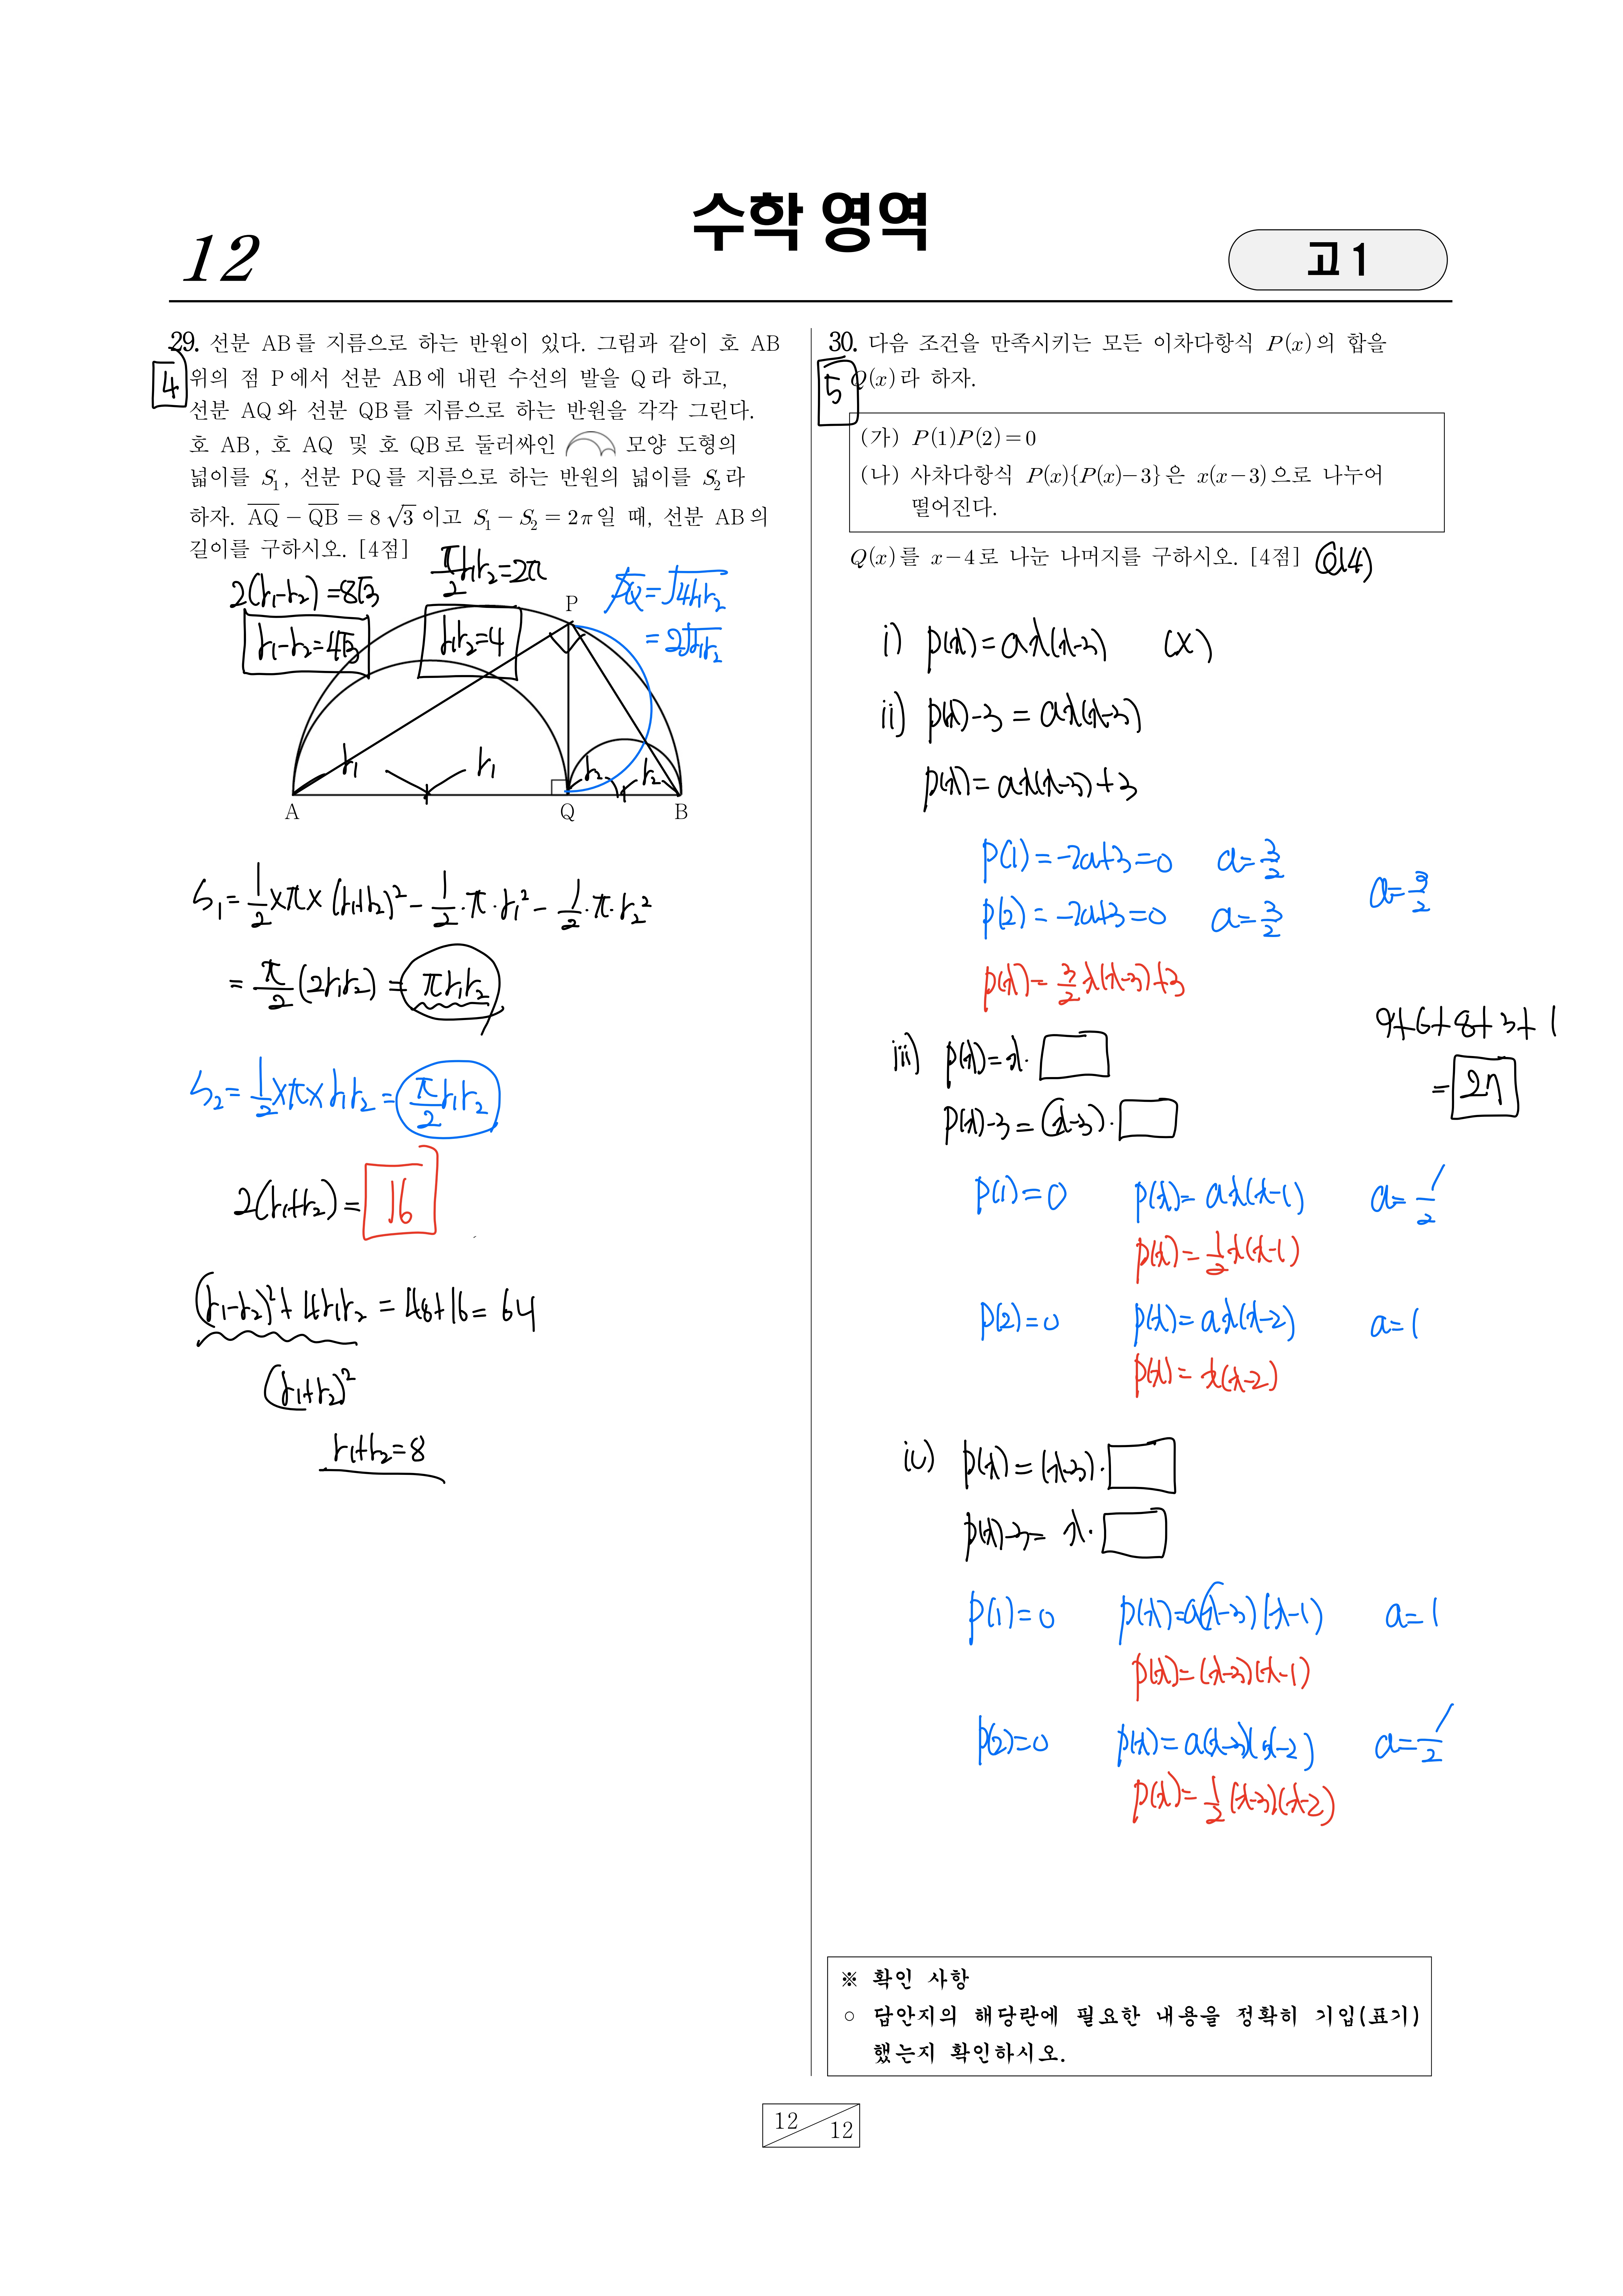 수학 영역
12
고 1
29. 선분 AB를 지름으로 하는 반원이 있다. 그림과 같이 호 AB
위의 점 P에서 선분 AB에 내린 수선의 발을 Q라 하고,
선분 AQ와 선분 QB를 지름으로 하는 반원을 각각 그린다.
호 AB, 호 AQ 및 호 QB로 둘러싸인 모양 도형의
넓이를 S₁, 선분 PQ를 지름으로 하는 반원의 넓이를 S₂라
하자. AQ − QB = 8√3 이고 S₁ − S₂ = 2π일 때, 선분 AB의
길이를 구하시오. [4점]
4
2(r₁-r₂)=8√3
π/2 r₁r₂=2π
r₁-r₂=4√3
r₁r₂=4
PQ=√4r₁r₂
=2√r₁r₂
P
r₁ r₁ r₂ r₂
A Q B
S₁=1/2×π×(r₁+r₂)²-1/2·π·r₁²-1/2·π·r₂²
=π/2(2r₁r₂)=πr₁r₂
S₂=1/2×π×r₁r₂=π/2 r₁r₂
2(r₁+r₂)=16
(r₁-r₂)²+4r₁r₂=48+16=64
(r₁+r₂)²
r₁+r₂=8
30. 다음 조건을 만족시키는 모든 이차다항식 P(x)의 합을
Q(x)라 하자.
5
(가) P(1)P(2)=0
(나) 사차다항식 P(x){P(x)−3}은 x(x−3)으로 나누어
떨어진다.
Q(x)를 x−4로 나눈 나머지를 구하시오. [4점] Q(4)
i) P(x)=ax(x-3) (×)
ii) P(x)-3=ax(x-3)
P(x)=ax(x-3)+3
P(1)=-2a+3=0 a=3/2
P(2)=-2a+3=0 a=3/2
a=3/2
P(x)=3/2x(x-3)+3
9+6+8+3+1
=27
iii) P(x)=x·
P(x)-3=(x-3)·
P(1)=0 P(x)=ax(x-1) a=1/2
P(x)=1/2x(x-1)
P(2)=0 P(x)=ax(x-2) a=1
P(x)=x(x-2)
iv) P(x)=(x-3)·
P(x)-3=x·
P(1)=0 P(x)=a(x-3)(x-1) a=1
P(x)=(x-3)(x-1)
P(2)=0 P(x)=a(x-3)(x-2) a=1/2
P(x)=1/2(x-3)(x-2)
※ 확인 사항
○ 답안지의 해당란에 필요한 내용을 정확히 기입(표기)
했는지 확인하시오.
12
12